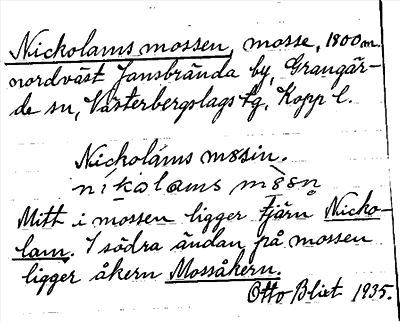 Nickolamsmossen, mosse, 1800 m.
nordväst Jansbrända by, Grangär-
de sn, Västerbergslags tg, Kopp l.
Nickolåms møsin.
níkolams mø̀sn
Mitt i mossen ligger tjärn Nicko-
lam. I södra ändan på mossen
ligger åkern Mossåkern.
Otto Blixt 1935.